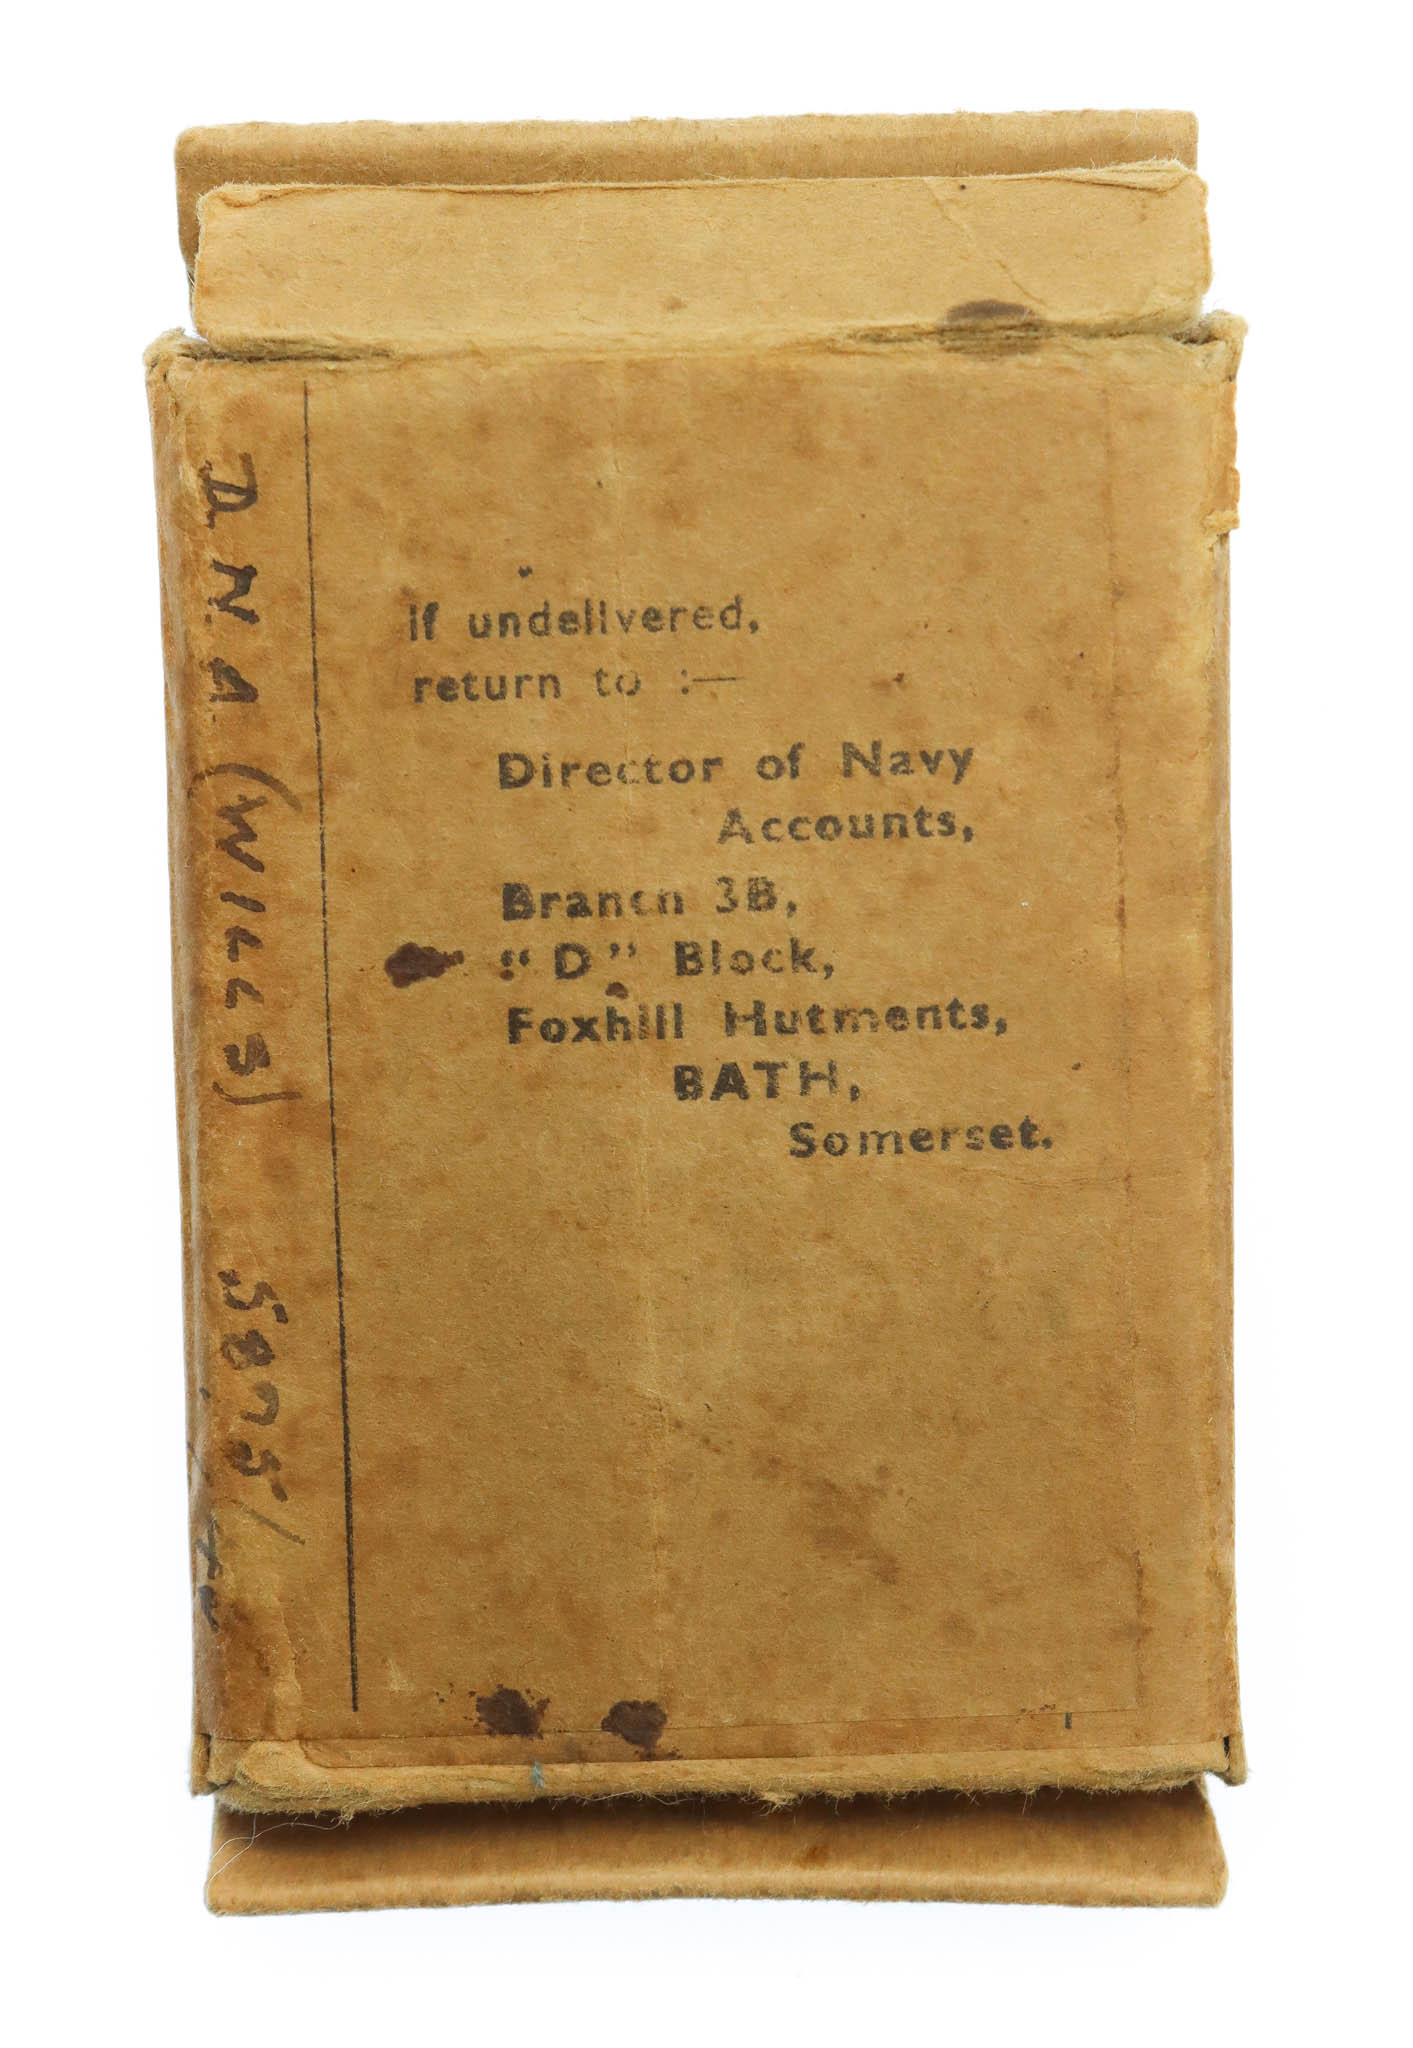 If undelivered,
return to :—
Director of Navy
Accounts,
Branch 3B,
"D" Block,
Foxhill Hutments,
BATH,
Somerset.
D.N.A. (WILLS) 5875/